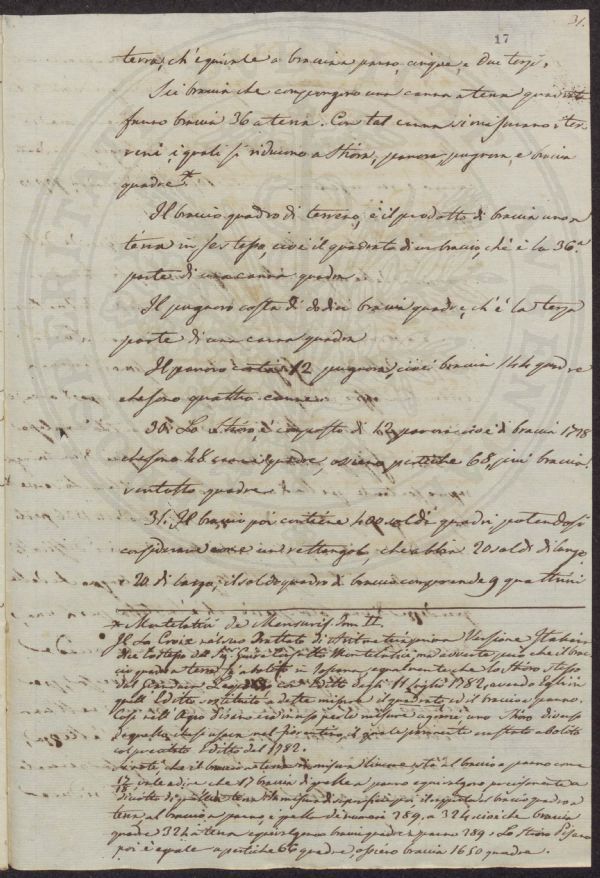 31.
17
terra, ch'equivale a braccia panno, cinque, e due terzi.
Sei braccia che compongono una canna a terra quadrata
fanno braccia 36 a terra. Con tal canna si misurano i ter-
reni, i quali si riducono a Stiora, panora, pugnora, e braccia
quadre *
Il braccio quadro di terreno, è il prodotto di braccia uno a
terra in se stesso, cioè il quadrato di un braccio, ch'è la 36.a
parte di una canna quadra.
Il pugnoro costa di dodici braccia quadre, ch'è la terza
parte di una canna quadra
Il panoro costa 12 pugnora, cioè braccia 144 quadre
che sono quattro canne
30. Lo Stioro, è composto di 12 panora cioè di braccia 1728
che sono 48 canne quadre, ossieno pertiche 68, più braccia
ventotto quadre
31. Il braccio poi contiene 400 soldi quadri potendosi
considerare come un rettangolo, che abbia 20 soldi di lungo
e 20 di largo, il soldo quadro di braccio comprende 9 quattrini
* Montelatici de Mensuris
Il La Croix nel suo Trattato di Aritmetica prima Versione Italiana
avverte, che il brac-
cio panno a terra fu abolito in Toscana, egualmente che lo Stioro stesso
dal Granduca Leopoldo con Editto degli 11 Luglio 1782, avendo Egli in
quell'Editto sostituito a dette misure il quadrato, ed il braccio a panno.
Così nell'Agro Pisano era in uso per le misure agrarie, uno Stioro diverso
da quello, che si usava nel fiorentino, il quale parimente restato abolito
col precitato Editto del 1782.
Si noti che il braccio a terra di misura lineare sta al braccio a panno come
17
18, vale a dire che 17 braccia di quelle a panno equivalgono precisamente a
diciotto di quelle a terra. In misura di superficie poi, il rapporto del braccio quadro a
terra al braccio a panno, è quello de' numeri 289, a 324, cioè che braccia
quadre 324 a terra equivalgono a braccia quadre a panno 289. Lo Stioro Pisano
poi è eguale a pertiche 66 quadre, ossieno braccia 1650 quadre.